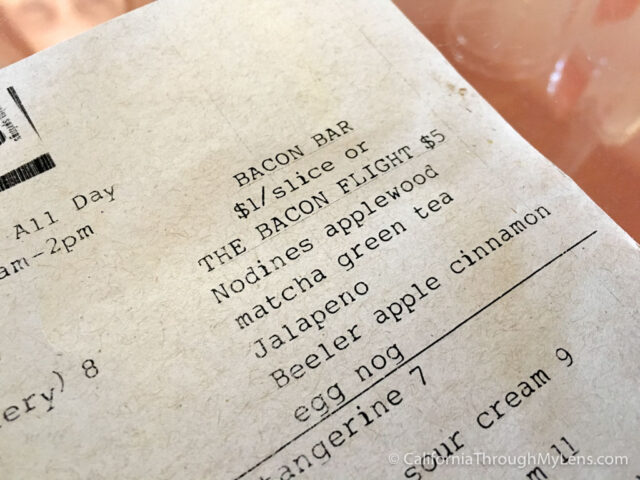 All Day
am-2pm
ery) 8
BACON BAR
$1/slice or
THE BACON FLIGHT $5
Nodines applewood
matcha green tea
Jalapeno
Beeler apple cinnamon
egg nog
tangerine 7
sour cream 9
m 11
© CaliforniaThroughMyLens.com